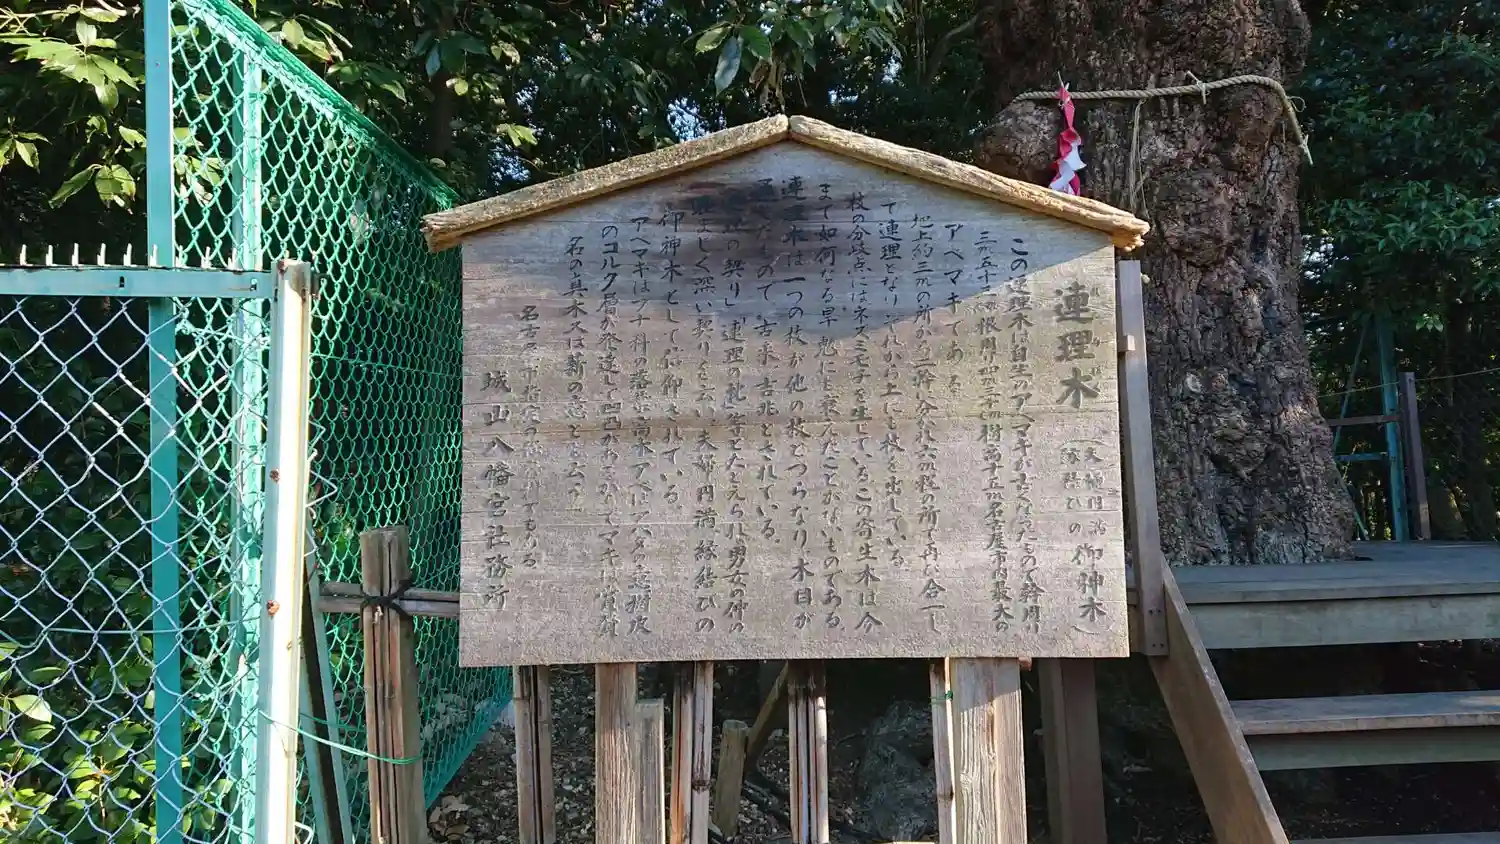 連理木
(夫婦円満
縁結びの御神木)
この連理木は自生のアベマキが古くなったもので幹周り
三米五十二糎根周り四米 樹高十五米名古屋市内最大の
アベマキである。
地上約三米の所から二株に分れ六米程の所で再び合一し
て連理となりそれから上にも枝を出している。
枝の分岐点にはネズミモチを生じているこの寄生木は今
まで如何なる旱魃にも衰えたことがないものである。
連理木は一つの枝が他の枝とつらなり、木目が
通じたもので、古来、吉兆とされている。
の契り」「連理の枝」等とたとえられ、男女の仲の
睦まじく深い契りを云い、夫婦円満縁結びの
御神木として信仰されている。
アベマキはブナ科の落葉高木アベはアバタの意樹皮
のコルク層が発達して凹凸がある マキは
名の真木又は薪の意と云う。
名古屋市指定の保存樹でもある
城山八幡宮社務所